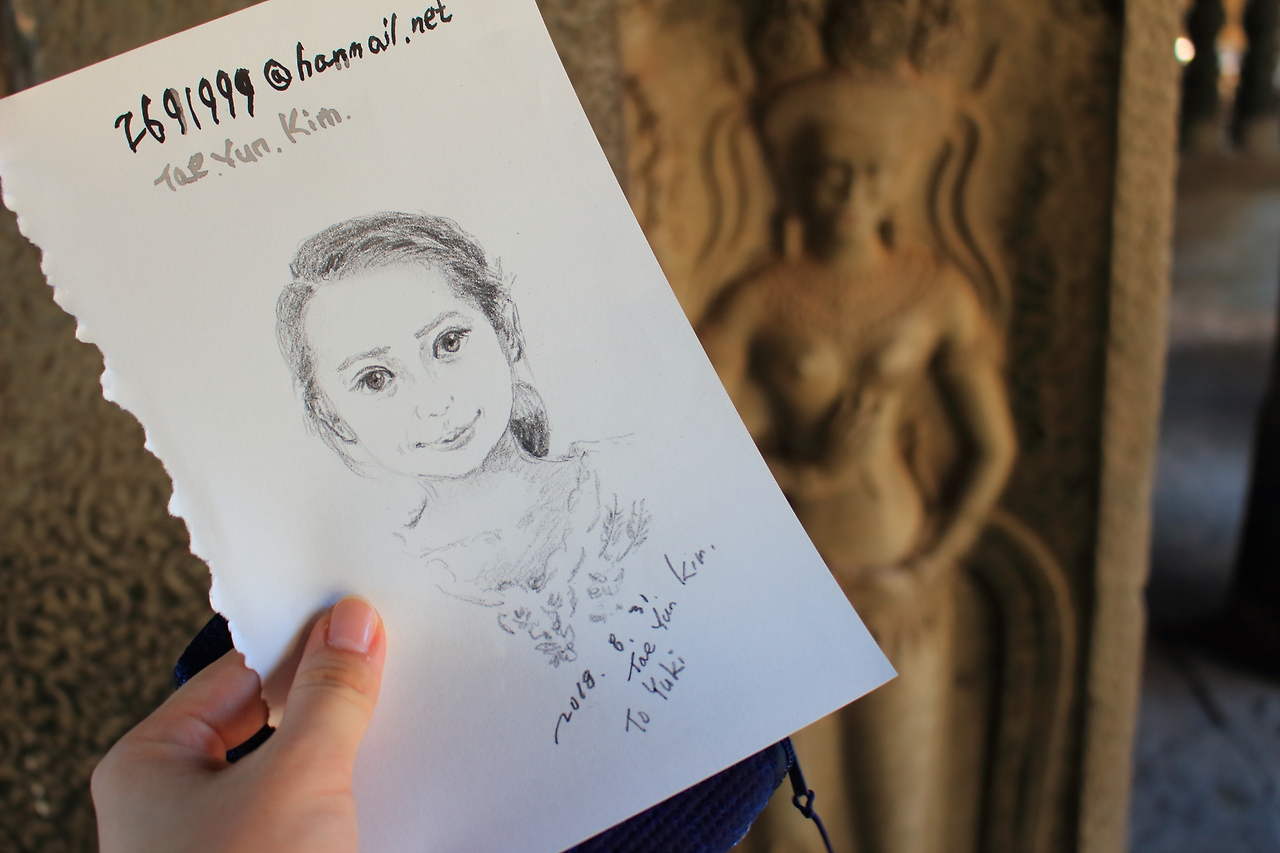 2691999@hanmail.net
Tae.Yun.Kim.
2018. 8. 31.
Tae Yun Kim.
To Yuki